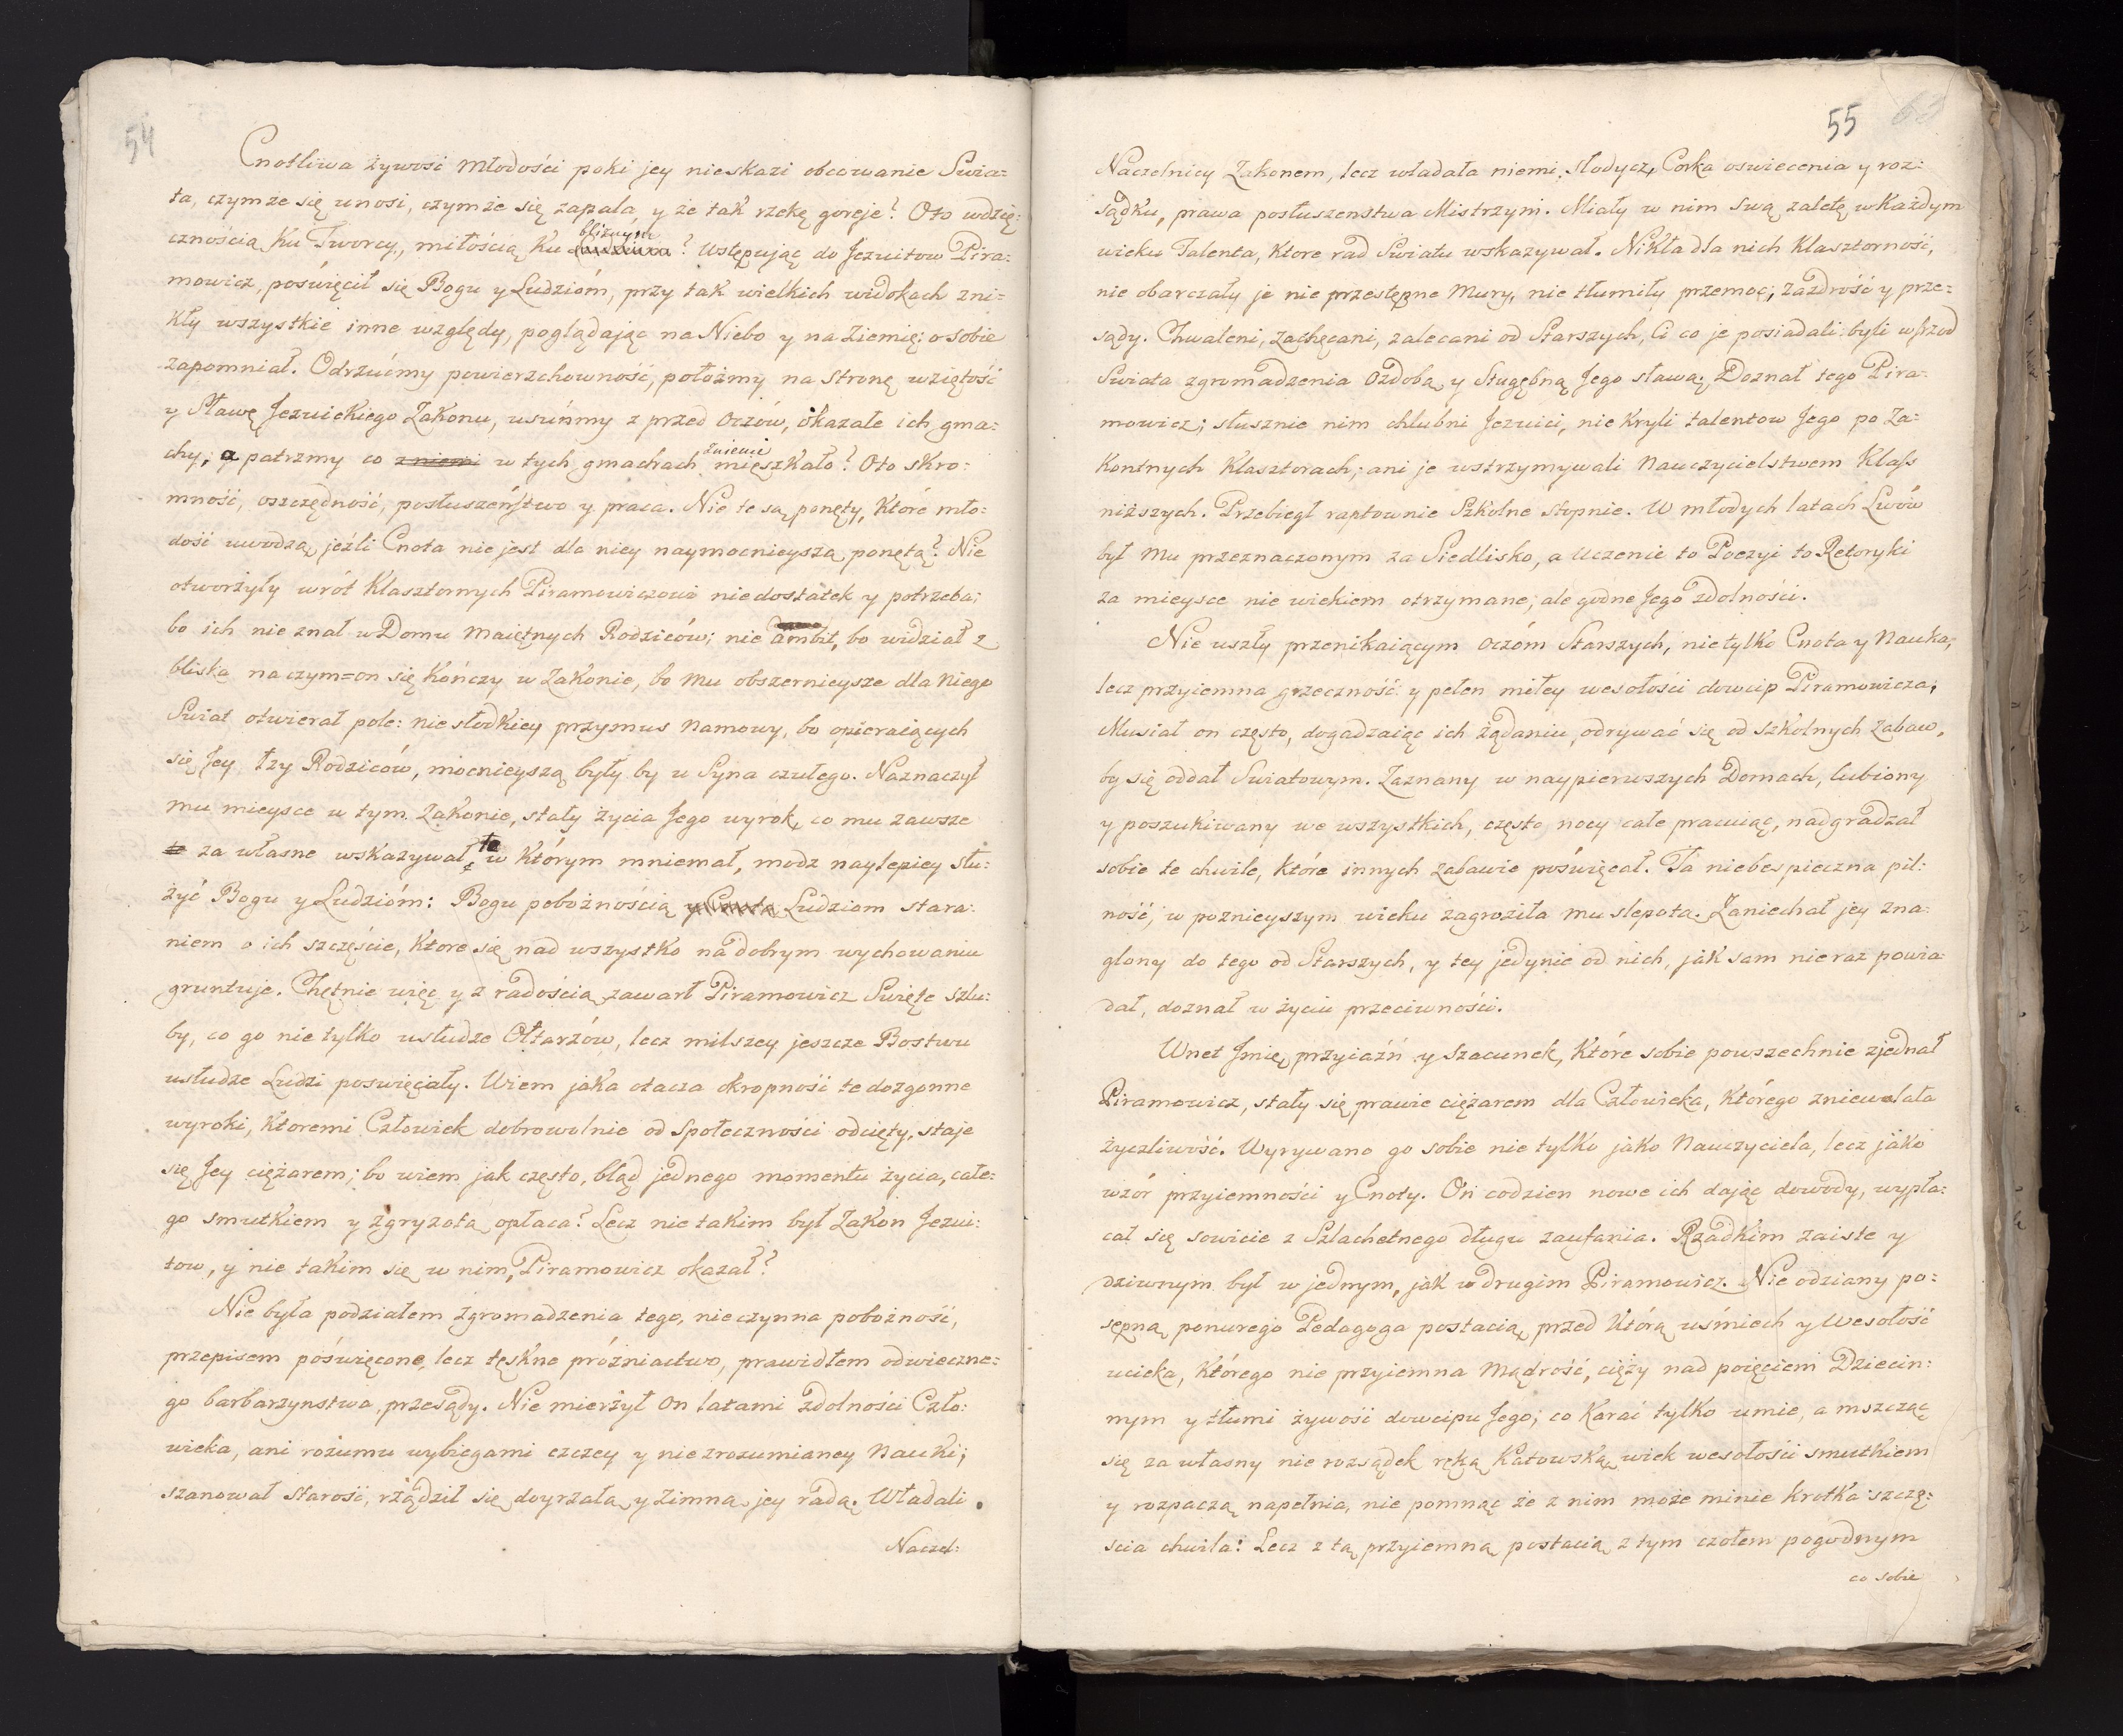 54
Cnotliwa żywość Młodości poki jey nieskazi obcowanie Swia=
ta, czymże się unosi, czymże się zapala, y że tak rzekę goreje? Oto wdzię:
cznością Ku Tworcy, miłością Ku bliźnym? Wstępując do Jezuitow Pira:
mowicz, poświęcił się Bogu y Ludzióm, przy tak wielkich widokach zni=
kły wszystkie inne względy, poglądając na Niebo y na Ziemię: o sobie
zapomniał. Odrzućmy powierzchowność, połóżmy na Stronę wziętość
y Sławę Jezuickiego Zakonu, usuńmy z przed Oczów, okazałe ich gma=
chy; a patrzmy co zniemi w tych gmachach znienie mięszkało? Oto skro:
mność, oszczędność, posłuszeństwo y praca. Nie te są ponęty, Które mło:
dość uwodzą, jeżli Cnota nie jest dla niey naymocnieyszą ponętą? Nie
otworżyły wrót Klasztornych Piramowiczowi niedostatek y potrzeba;
bo ich nie znał w Domu Maiętnych Rodziców; nie ambit, bo widział z
bliska na czym=on się Kończy w Zakonie, bo Mu obszernieysze dla Niego
Swiat otwierał pole: nie słodkiey przymus Namowy, bo opieraiących
się Jey łzy Rodziców, mocnieyszą były by u Syna czułego. Naznaczył
mu mieysce w tym Zakonie, stały życia Jego wyrok, co mu zawsze
to za własne wskazywał, te w Którym mniemał, modz naylepiey słu:
żyć Bogu y Ludzióm: Bogu pobożnością y Cnotą Ludziom stara:
niem o ich szczęście, Ktore się nad wszystko na dobrym wychowaniu
gruntuje. Chętnie więc y z radością zawarł Piramowicz Swięte szlu:
by, co go nie tylko usłudze Ołtarzów, lecz milszey jeszcze Bostwu
usłudze Ludzi poswięciały. Wiem jaka otacza okropność te dozgonne
wyroki, Ktoremi Człowiek dobrowolnie od Społeczności odcięty, staje
się Jey ciężarem; bo wiem jak często, błąd jednego momentu życia, całe:
go smutkiem y zgryzotą opłaca? Lecz nie takim był Zakon Jezui:
tow, y nie takim się w nim, Piramowicz okazał?
Nie była podziałem Zgromadzenia tego, nieczynna pobożność,
przepisem poświęcone lecz tęskne próżniactwo, prawidłem odwieczne=
go barbarzynstwa, przesądy. Nie mierżył On latami zdolności Czło:
wieka, ani rozumu wybiegami czczey y nie zrozumianey Nauki;
szanował starość, rżądził się doyrzałą y zimną jey radą. Władali
Naczel:
55
63
Naczelnicy Zakonem, lecz władała niemi Słodycz, Corka oswiecenia y roz:
sądku, prawa posłuszenstwa Mistrzyni. Miały w nim swą zaletę w Każdym
wieku Talenta, Ktore rad Swiatu wskazywał. Nikła dla nich Klasztorność,
nie obarczały je nie przestępne Mury, nie tłumiły przemoc, zazdrość y prze=
sądy. Chwaleni, zachęcani, zalecani od Starszych, Ci co je posiadali: byli wsrzod
Swiata zgromadzenia Ozdobą y Stugębną Jego sławą; Doznał tego Pira=
mowicz; słusznie nim chlubni Jezuici, nie Kryli talentow Jego po Za:
Kontnych Klasztorach; ani je wstrzymywali Nauczycielstwem Klass
niższych. Przebiegł raptownie Szkolne stopnie. W młodych latach Lwów
był Mu przeznaczonym za Siedlisko, a Uczenie to Poezyi to Retoryki
za mieysce nie wiekiem otrzymane, ale godne Jego zdolności.
Nie uszły przenikaiącym Oczóm Starszych, nie tylko Cnota y Nauka,
lecz przyiemna grzeczność y pełen miłey wesołości dowcip Piramowicza;
Musiał on często, dogadzaiąc ich żądaniu, odrywać się od Szkolnych zabaw,
by się oddał Swiatowym. Zaznany w naypierwszych Domach, lubiony
y poszukiwany we wszystkich, często nocy całe pracuiąc, nadgradzał
sobie te chwile, Które innych zabawie poświęcał. Ta niebespieczna pil:
ność, w poznieyszym wieku zagroziła mu slepotą. Zaniechał jey zna:
glony do tego od Starszych, y tey jedynie od nich, jak sam nieraz powia=
dał, doznał w życiu przeciwności.
Wnet Jmię, przyiaźń y Szacunek, Które sobie powszechnie zjednał
Piramowicz, stały się prawie ciężarem dla Człowieka, Którego zniewalała
życzliwość. Wyrywano go sobie nie tylko jako Nauczyciela, lecz jako
wzór przyiemności y Cnoty. On codzien nowe ich dając dowody, wypła:
cał się sowicie z Szlachetnego długu zaufania. Rzadkim zaiste y
dziwnym był w jednym, jak w drugim Piramowicz. Nie odziany po=
sępną ponurego Pedagoga postacią, przed Którą uśmiech y Wesołość
ucieka, Którego nie przyiemna Mądrość, cięży nad poięciem Dziecin:
nym y tłumi żywość dowcipu Jego; co Karać tylko umie, a mszcząc
się za własny nie rozsądek ręką Katowską, wiek wesołości smutkiem
y rozpaczą napełnia, nie pomnąc że z nim może minie Krotka szczę:
scia chwila! Lecz z tą przyiemną postacią, z tym czołem pogodnym
co sobie